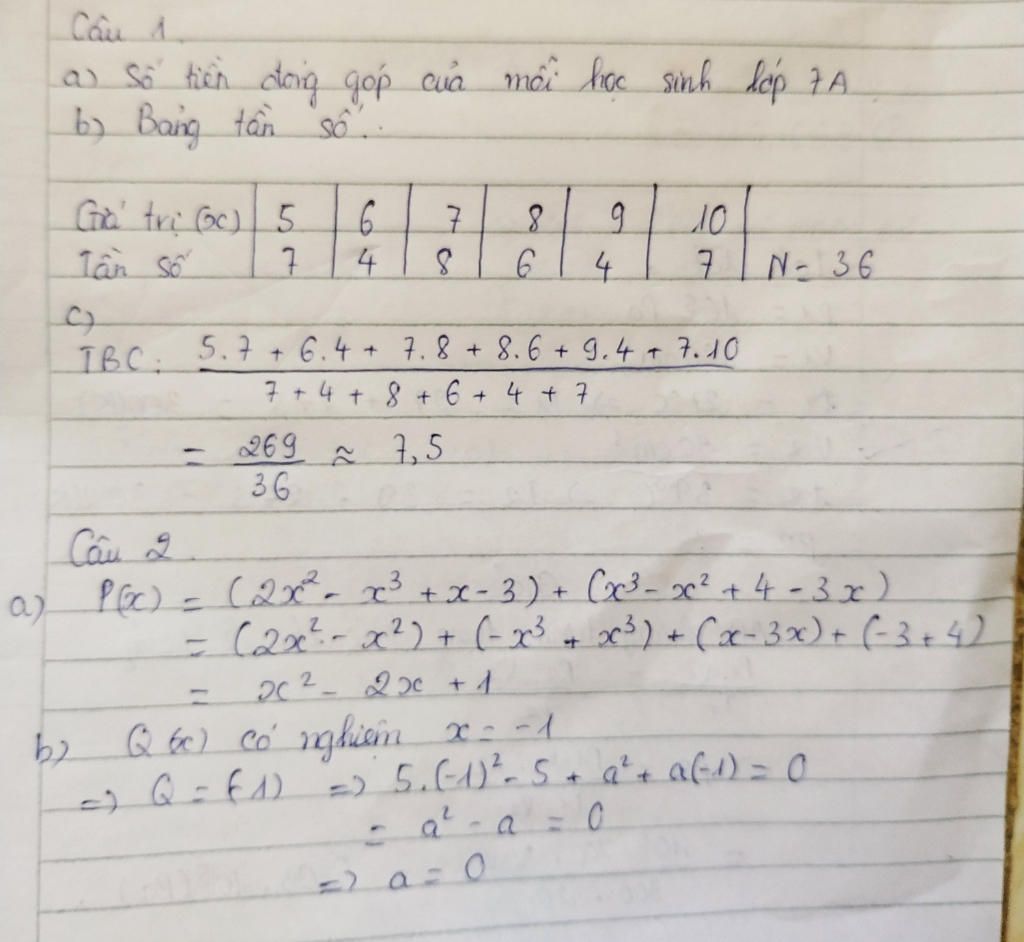 Câu 1.
a) Số tiền đóng góp của mỗi học sinh lớp 7A
b) Bảng tần số.
Giá trị (x) | 5 | 6 | 7 | 8 | 9 | 10 |
Tần số | 7 | 4 | 8 | 6 | 4 | 7 | N = 36
c)
TBC: (5.7 + 6.4 + 7.8 + 8.6 + 9.4 + 7.10) / (7 + 4 + 8 + 6 + 4 + 7)
= 269/36 ≈ 7,5
Câu 2.
a) P(x) = (2x² - x³ + x - 3) + (x³ - x² + 4 - 3x)
= (2x² - x²) + (-x³ + x³) + (x - 3x) + (-3 + 4)
= x² - 2x + 1
b) Q(x) có nghiệm x = -1
=> Q = (-1) => 5.(-1)² - 5 + a² + a(-1) = 0
= a² - a = 0
=> a = 0